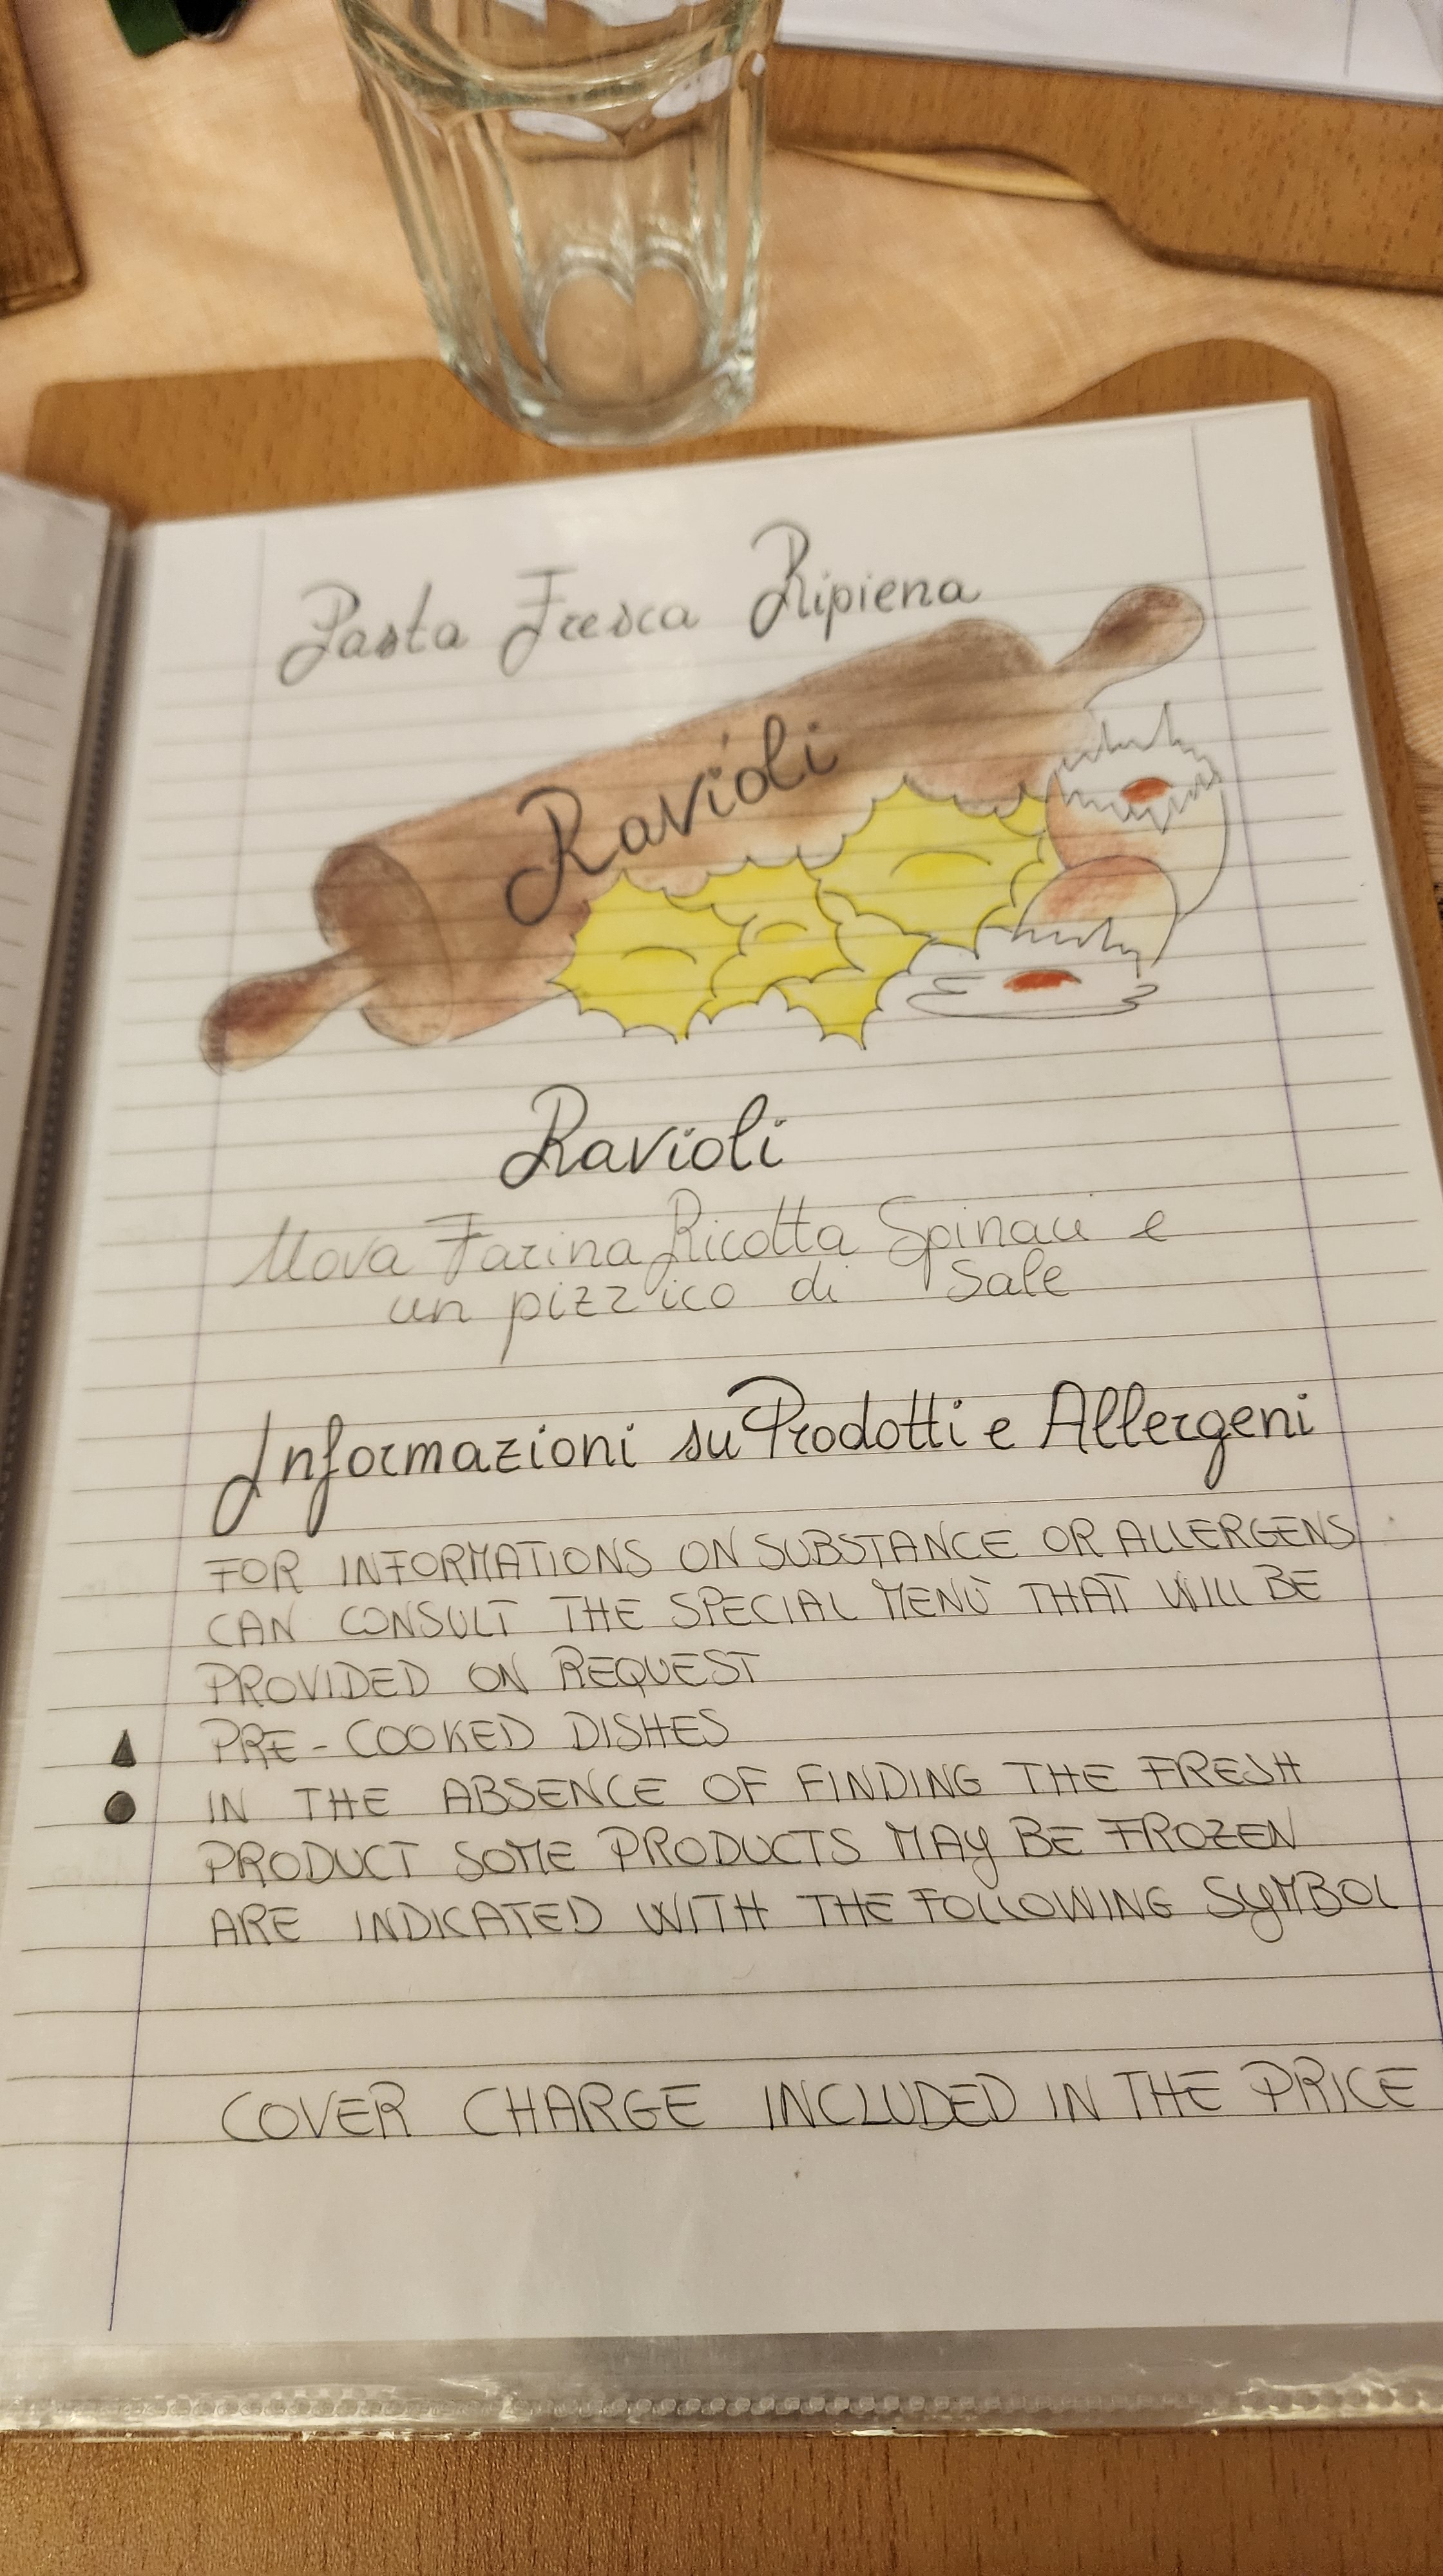 Pasta Fresca Ripiena
Ravioli
Ravioli
Uova Farina Ricotta Spinaci e
un pizzico di Sale
Informazioni su Prodotti e Allergeni
FOR INFORMATIONS ON SUBSTANCE OR ALLERGENS
CAN CONSULT THE SPECIAL MENÙ THAT WILL BE
PROVIDED ON REQUEST
▲ PRE-COOKED DISHES
● IN THE ABSENCE OF FINDING THE FRESH
PRODUCT SOME PRODUCTS MAY BE FROZEN
ARE INDICATED WITH THE FOLLOWING SYMBOL
COVER CHARGE INCLUDED IN THE PRICE